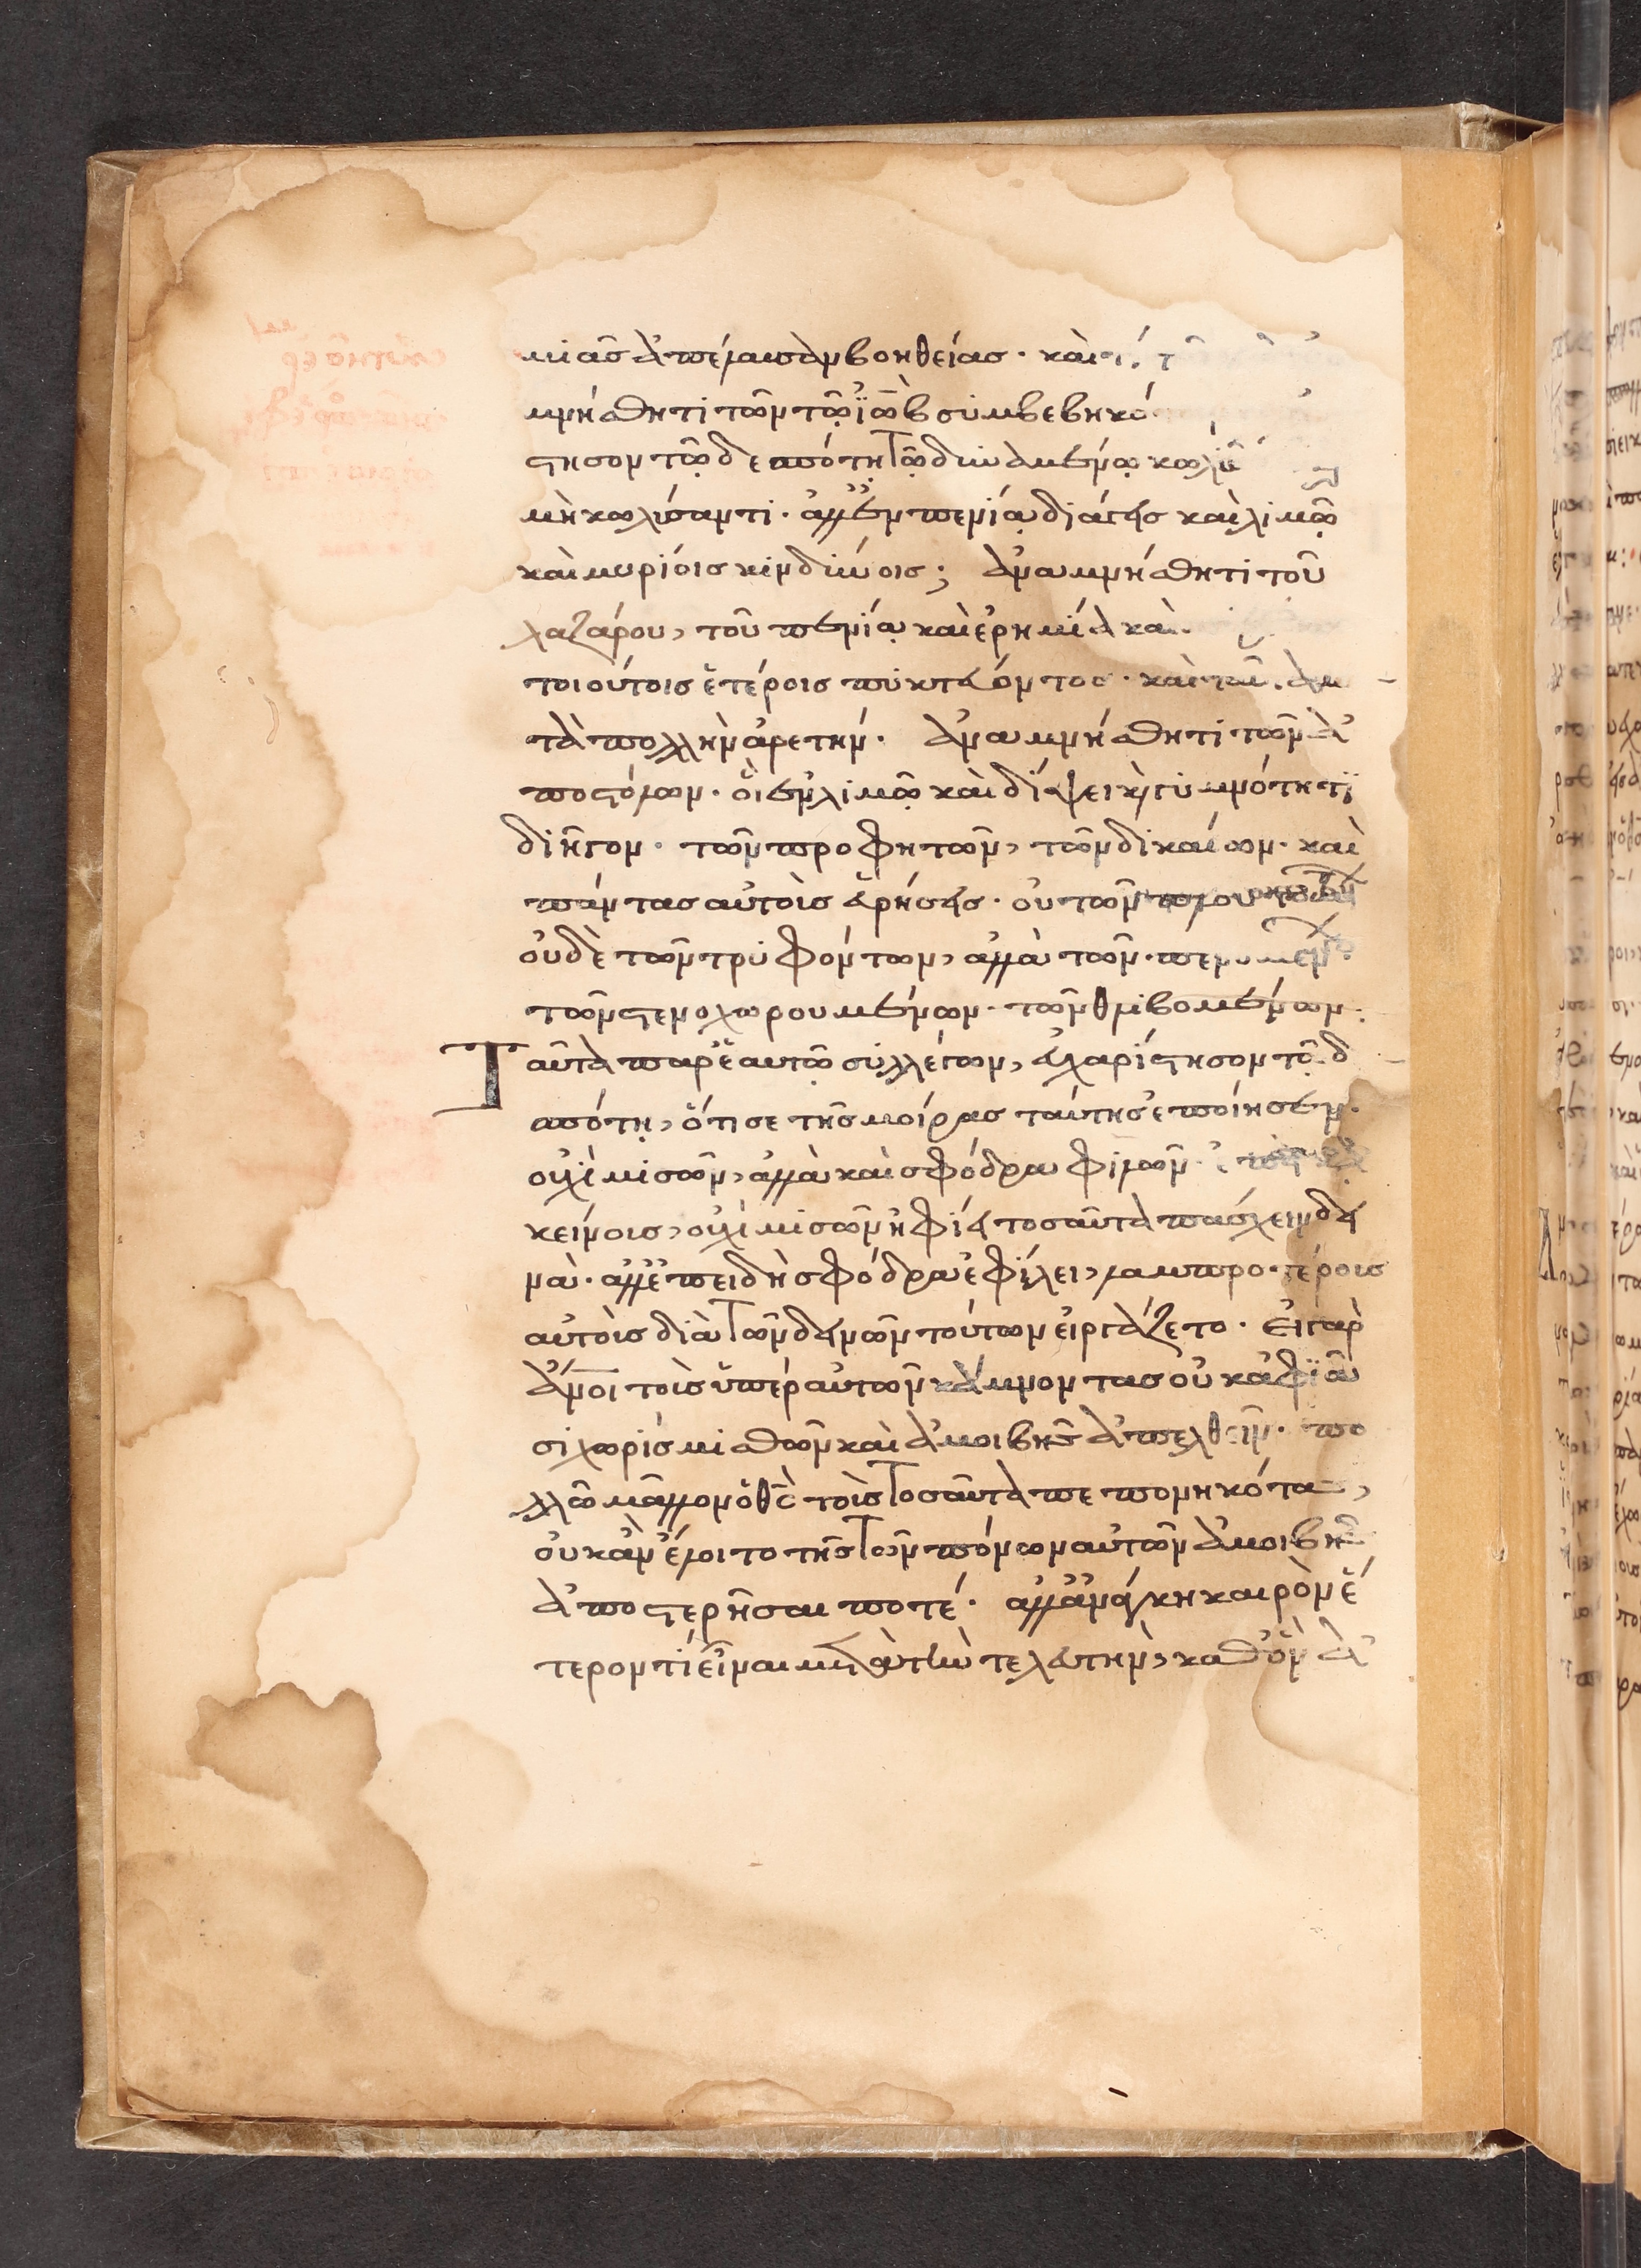 μιᾶς ἀπέλαυσαν βοηθείας. καὶ
μνήσθητι τῶν τῷ ἰὼβ συμβεβηκό
στησον τῷ δεσπότῃ τῷ δυναμένῳ
μὴ κωλύσαντι. ἀλλ' ἐν πενίᾳ διάγεις καὶ λιμῷ
καὶ μυρίοις κινδύνοις; ἀναμνήσθητι τοῦ
λαζάρου, τοῦ πενίᾳ καὶ ἐρημίᾳ καὶ
τοιούτοις ἑτέροις πυκτεύοντος. καὶ ταῦτα με
τὰ πολλὴν ἀρετήν. ἀναμνήσθητι τῶν ἀ
ποστόλων. οἳ ἐν λιμῷ καὶ δίψει καὶ γυμνότητι
διῆγον. τῶν προφητῶν, τῶν δικαίων. καὶ
πάντας αὐτοὺς εὑρήσεις. οὐ τῶν πλουτούντων
οὐδὲ τῶν τρυφόντων, ἀλλὰ τῶν πενομένων
τῶν στενοχωρουμένων. τῶν θλιβομένων.
Ταῦτα παρ' ἑαυτῷ συλλέγων, εὐχαρίστησον τῷ δ
σπότῃ, ὅτι σε τῆς μοίρας ταύτης ἐποίησεν.
οὐχὶ μισῶν, ἀλλὰ καὶ σφόδρα φιλῶν.
κείνοις, οὐχὶ μισῶν ἠφίει τοσαῦτα πάσχειν δει
νά. ἀλλ' ἐπειδὴ σφόδρα ἐφίλει, λαμπροτέρους
αὐτοὺς διὰ τῶν δεινῶν τούτων εἰργάζετο. Εἰ γὰρ
ἄνοι τοὺς ὑπὲρ αὐτῶν κάμνοντας οὐκ ἀφιᾶ
σι χωρὶς μισθῶν καὶ ἀμοιβῆς ἀπελθεῖν. πο
λλῷ μᾶλλον ὁ θς τοὺς τοσαῦτα πεπονηκότας,
οὐκ ἂν ἕλοιτο τῆς τῶν πόνων αὐτῶν ἀμοιβῆς
ἀποστερῆσαι ποτέ. ἀλλ' ἀνάγκη καιρὸν ἕ
τερόν τι εἶναι μετὰ τὴν τελευτὴν, καθ' ὃν ἀ